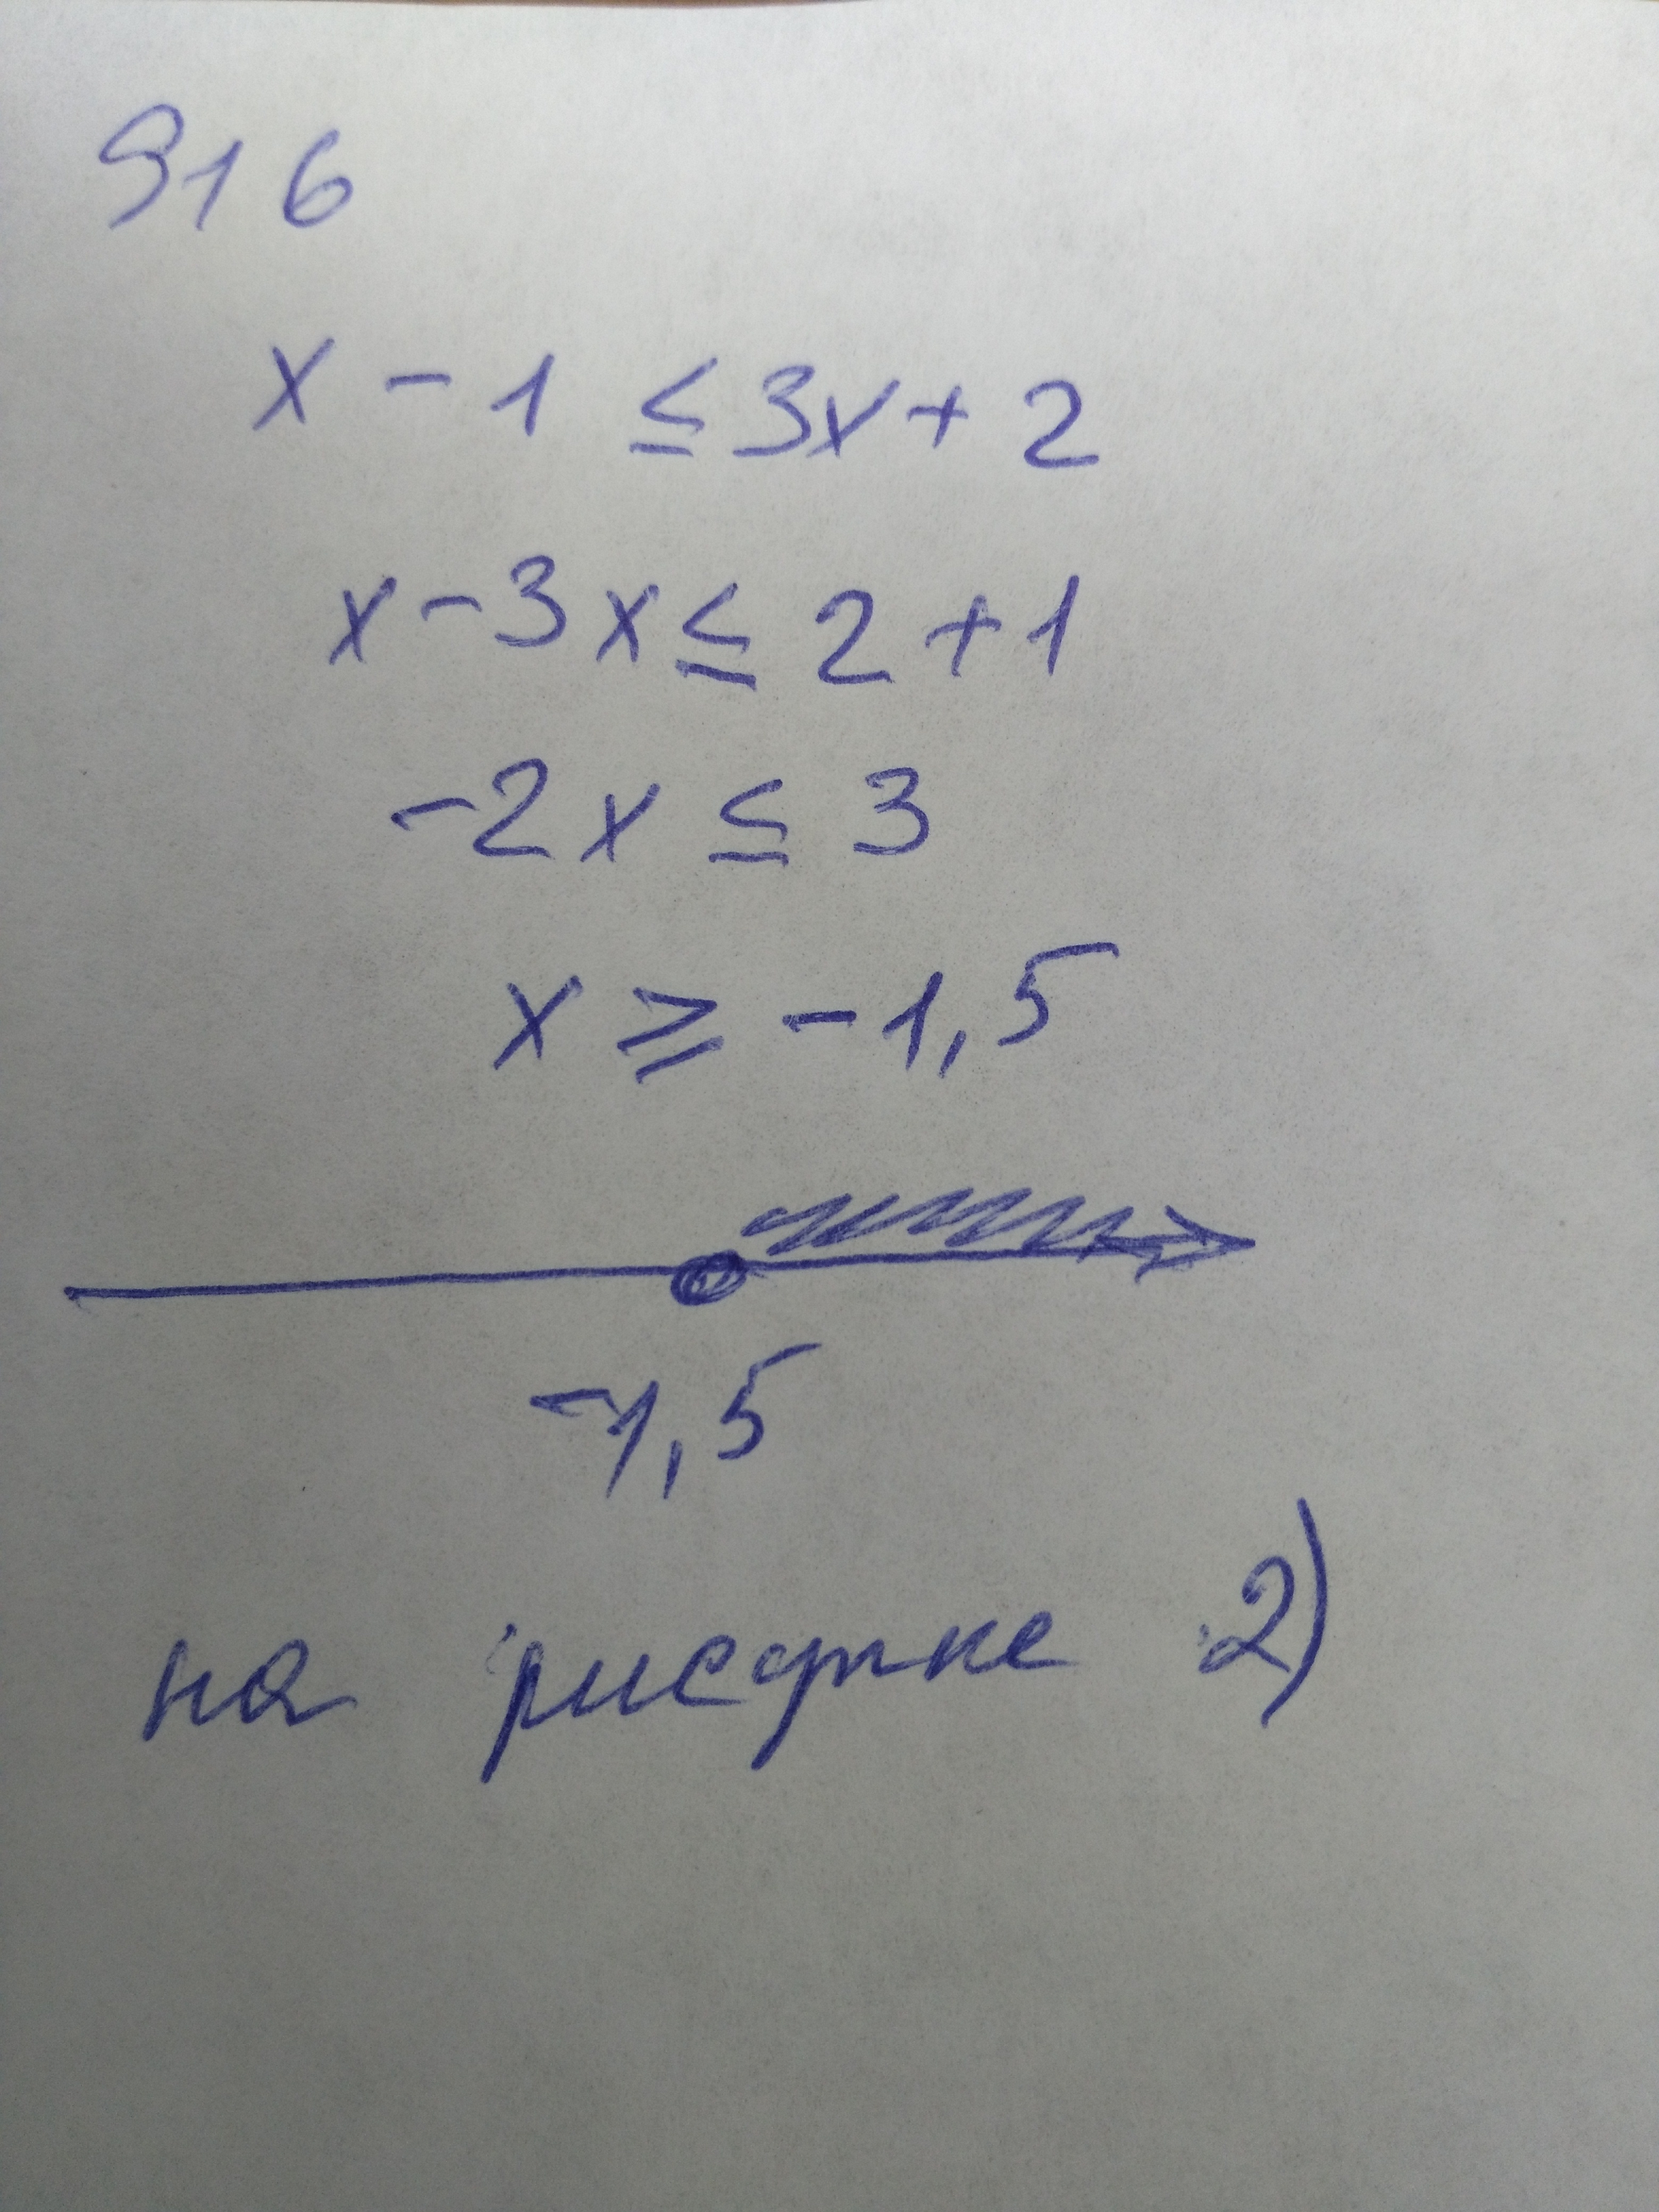 916
x - 1 ≤ 3x + 2
x - 3x ≤ 2 + 1
-2x ≤ 3
x ≥ -1,5
-1,5
на рисунке 2)